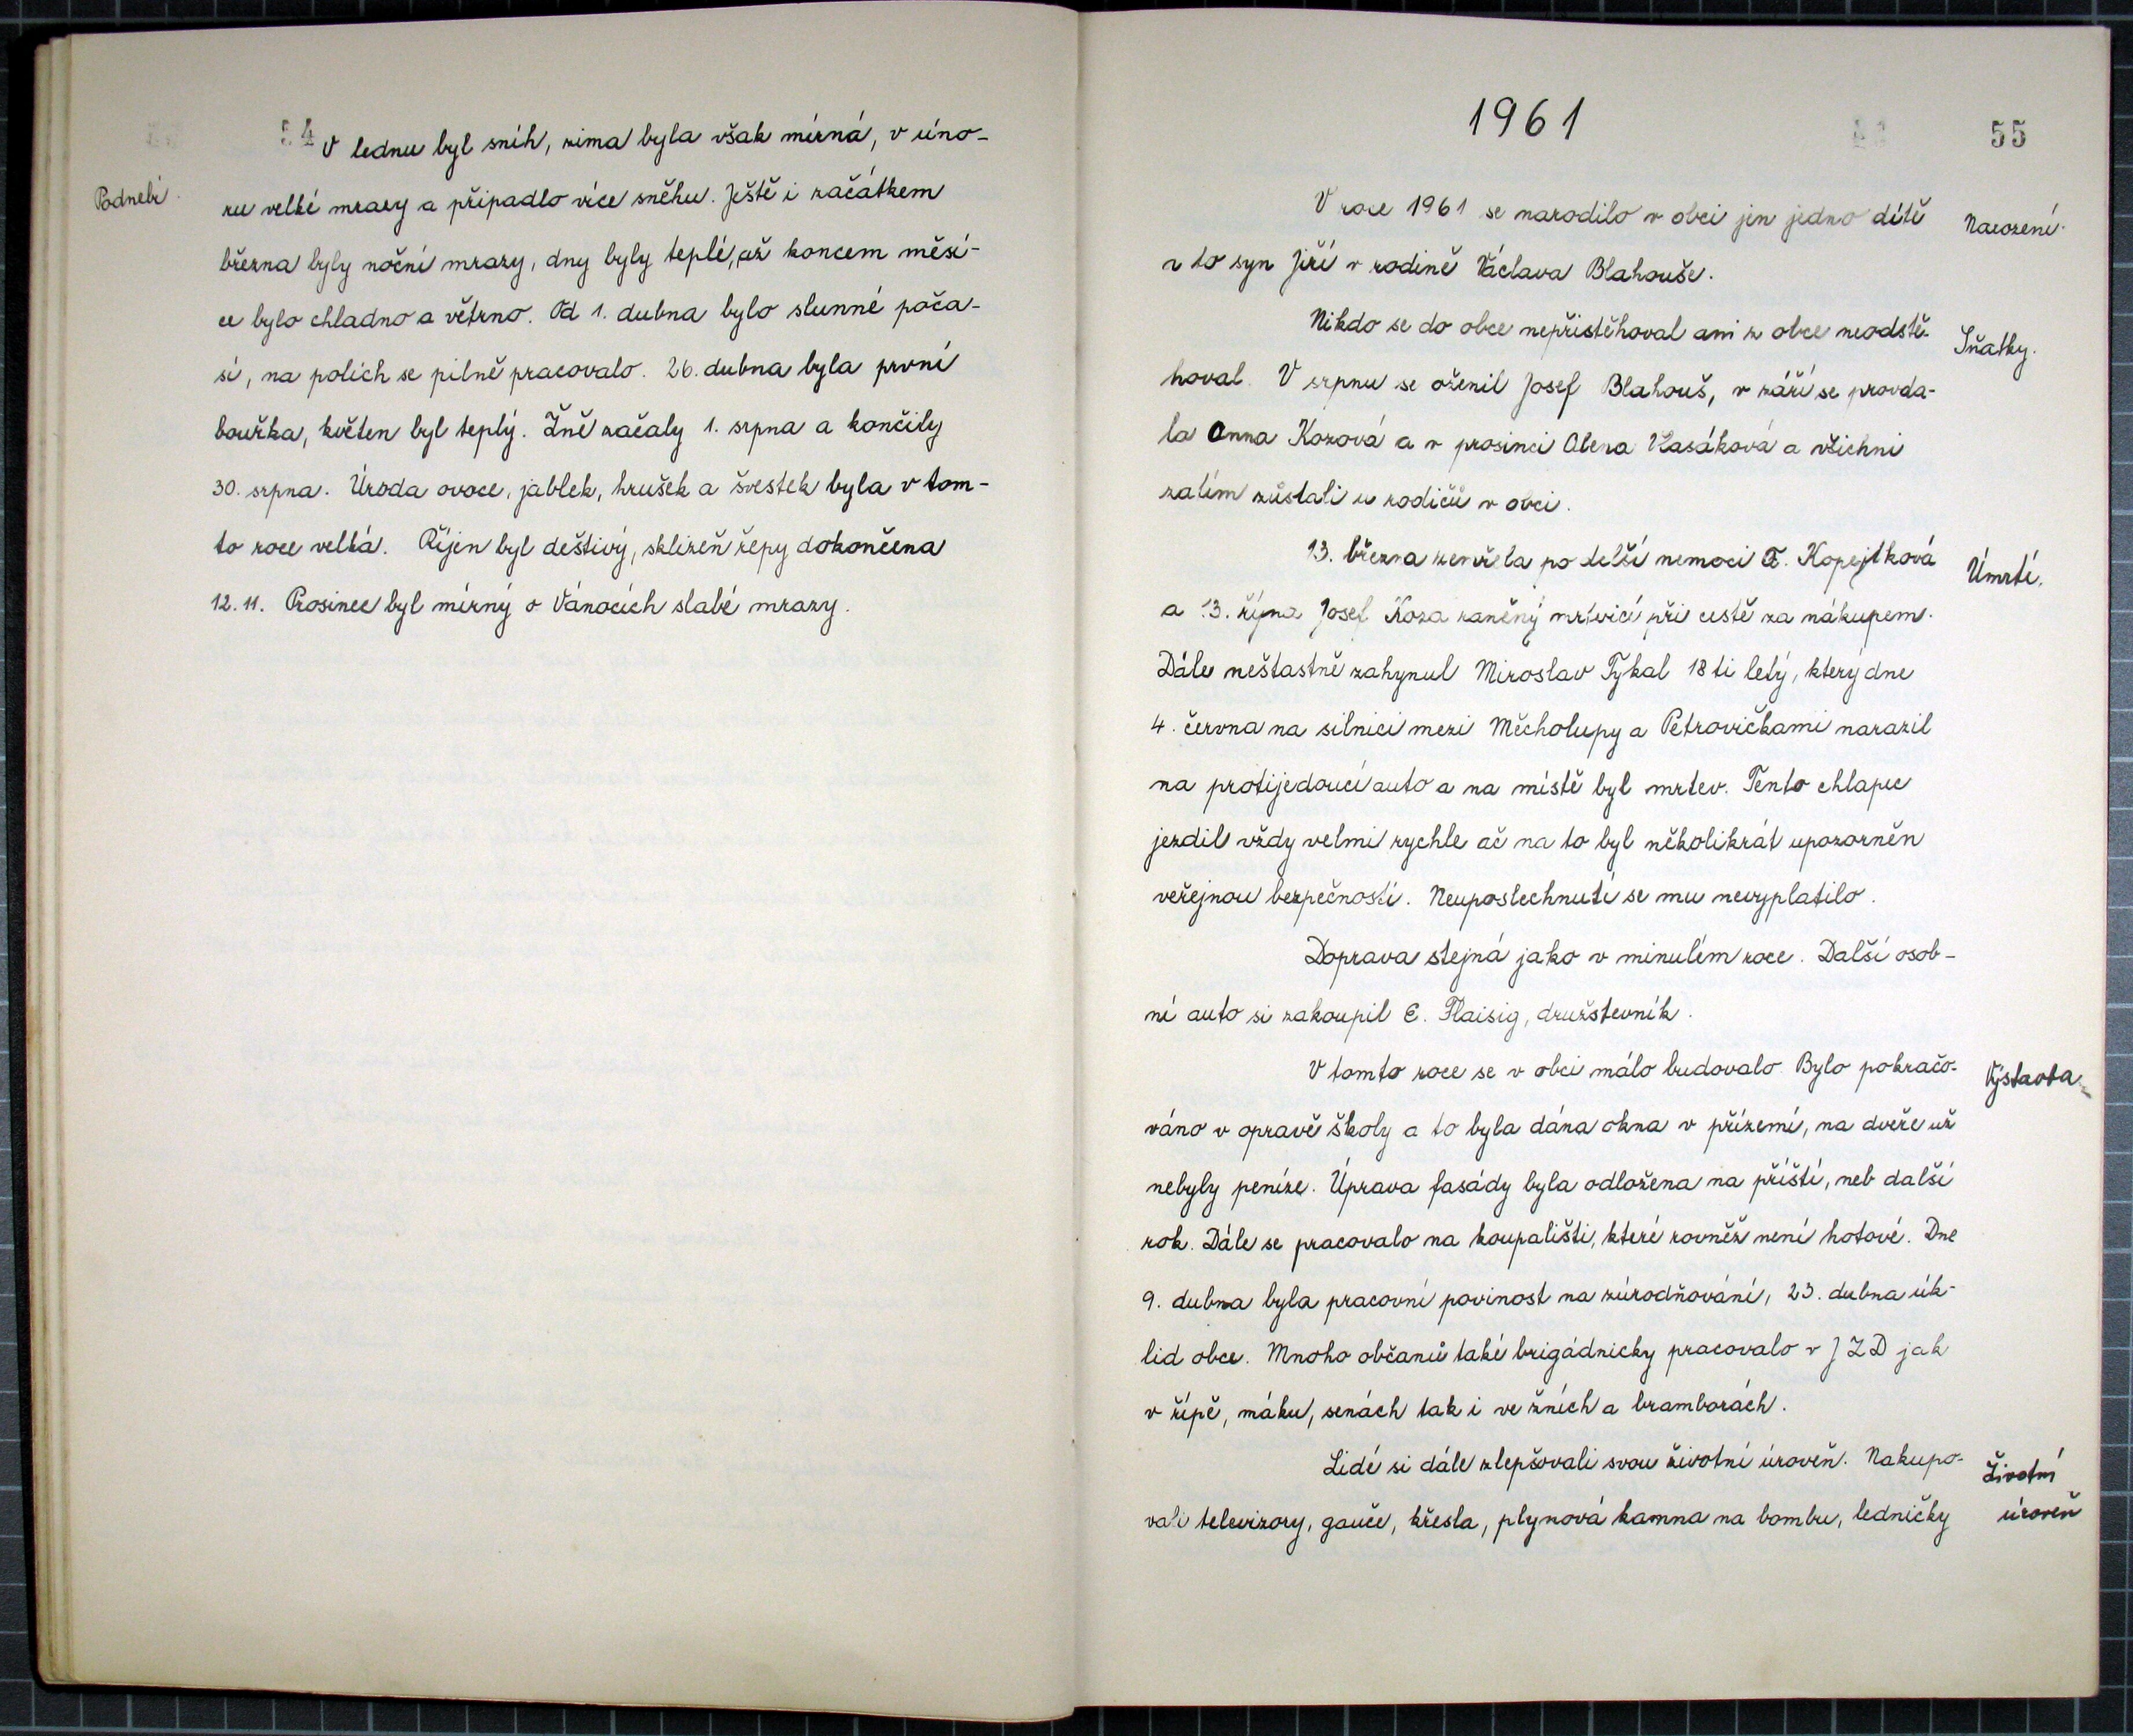 54
V lednu byl sníh, zima byla však mírná, v úno-
Podnebí.
ru velké mrazy a připadlo více sněhu. Ještě i začátkem
března byly noční mrazy, dny byly teplé, až koncem měsí-
ce bylo chladno a větrno. Od 1. dubna bylo slunné poča-
sí, na polích se pilně pracovalo. 26. dubna byla první
bouřka, květen byl teplý. Žně začaly 1. srpna a končily
30. srpna. Úroda ovoce, jablek, hrušek a švestek byla v tom-
to roce velká. Říjen byl deštivý, sklizeň řepy dokončena
12. 11. Prosinec byl mírný o Vánocích slabé mrazy.
1961
55
V roce 1961 se narodilo v obci jen jedno dítě
Narození.
a to syn Jiří v rodině Václava Blahouše.
Nikdo se do obce nepřistěhoval ani z obce neodstě-
Sňatky.
hoval. V srpnu se oženil Josef Blahouš, v září se provda-
la Anna Kozová a v prosinci Alena Vlasáková a všichni
zatím zůstali u rodičů v obci.
13. března zemřela po delší nemoci F. Kopejtková
Úmrtí.
a 13. října Josef Koza raněný mrtvicí při cestě za nákupem.
Dále neštastně zahynul Miroslav Tykal 18 ti letý, který dne
4. června na silnici mezi Měcholupy a Petrovičkami narazil
na protijedoucí auto a na místě byl mrtev. Tento chlapec
jezdil vždy velmi rychle ač na to byl několikrát upozorněn
veřejnou bezpečností. Neuposlechnutí se mu nevyplatilo.
Doprava stejná jako v minulém roce. Další osob-
ní auto si zakoupil E. Flaisig, družstevník.
V tomto roce se v obci málo budovalo. Bylo pokračo-
Výstavba
váno v opravě školy a to byla dána okna v přízemí, na dveře už
nebyly peníze. Úprava fasády byla odložena na příští, neb další
rok. Dále se pracovalo na koupališti, které rovněž není hotové. Dne
9. dubna byla pracovní povinost na zúrodňování, 23. dubna úk-
lid obce. Mnoho občanů také brigádnicky pracovalo v JZD jak
v řípě, máku, senách tak i ve žních a bramborách.
Lidé si dále zlepšovali svou životní úroveň. Nakupo-
Životní
vali televizory, gauče, křesla, plynová kamna na bombu, ledničky
úroveň